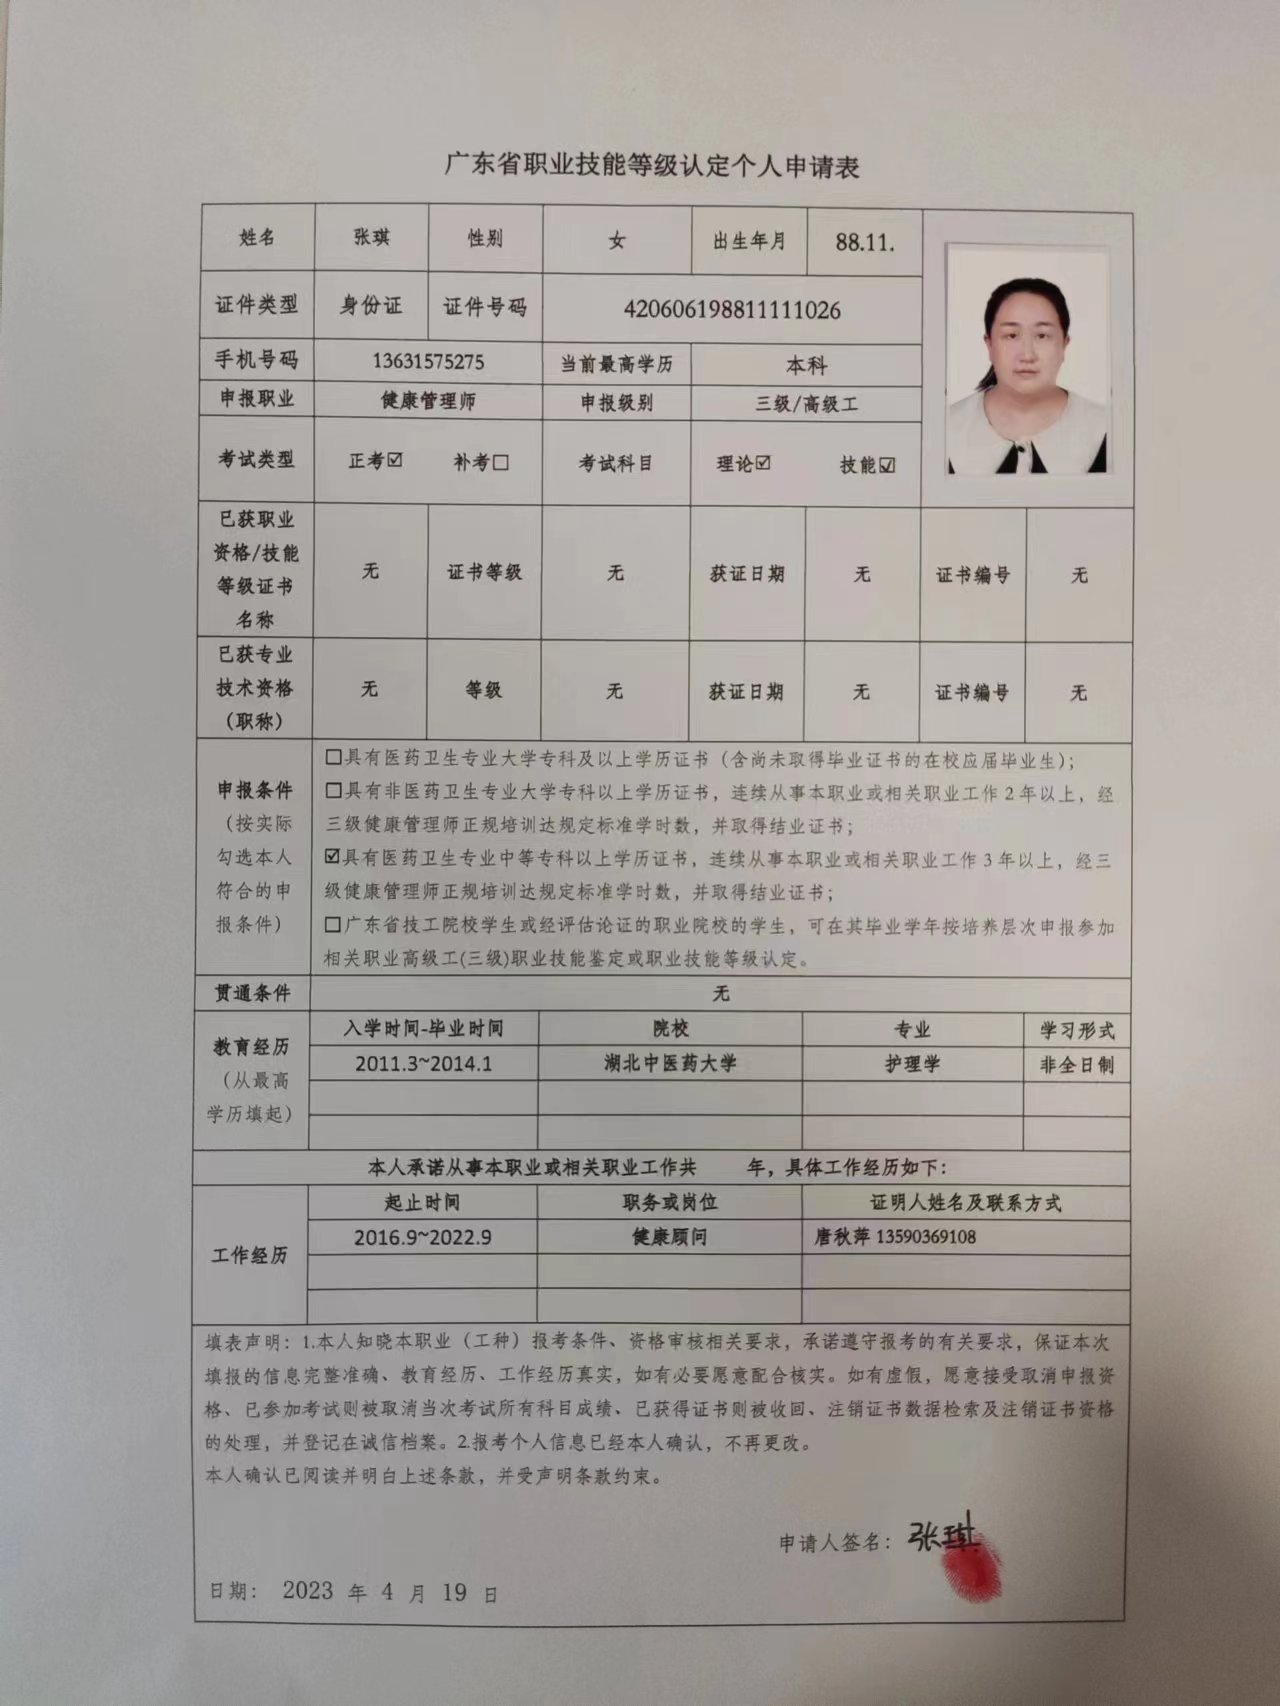 广东省职业技能等级认定个人申请表
姓名 张琪 性别 女 出生年月 88.11.
证件类型 身份证 证件号码 420606198811111026
手机号码 13631575275 当前最高学历 本科
申报职业 健康管理师 申报级别 三级/高级工
考试类型 正考☑ 补考☐ 考试科目 理论☑ 技能☑
已获职业
资格/技能
等级证书
名称
无 证书等级 无 获证日期 无 证书编号 无
已获专业
技术资格
（职称）
无 等级 无 获证日期 无 证书编号 无
申报条件
（按实际
勾选本人
符合的申
报条件）
☐具有医药卫生专业大学专科及以上学历证书（含尚未取得毕业证书的在校应届毕业生）；
☐具有非医药卫生专业大学专科以上学历证书，连续从事本职业或相关职业工作2年以上，经
三级健康管理师正规培训达规定标准学时数，并取得结业证书；
☑具有医药卫生专业中等专科以上学历证书，连续从事本职业或相关职业工作3年以上，经三
级健康管理师正规培训达规定标准学时数，并取得结业证书；
☐广东省技工院校学生或经评估论证的职业院校的学生，可在其毕业学年按培养层次申报参加
相关职业高级工(三级)职业技能鉴定或职业技能等级认定。
贯通条件 无
教育经历
（从最高
学历填起）
入学时间-毕业时间 院校 专业 学习形式
2011.3~2014.1 湖北中医药大学 护理学 非全日制
本人承诺从事本职业或相关职业工作共 年，具体工作经历如下：
工作经历
起止时间 职务或岗位 证明人姓名及联系方式
2016.9~2022.9 健康顾问 唐秋萍 13590369108
填表声明：1.本人知晓本职业（工种）报考条件、资格审核相关要求，承诺遵守报考的有关要求，保证本次
填报的信息完整准确、教育经历、工作经历真实，如有必要愿意配合核实。如有虚假，愿意接受取消申报资
格、已参加考试则被取消当次考试所有科目成绩、已获得证书则被收回、注销证书数据检索及注销证书资格
的处理，并登记在诚信档案。2.报考个人信息已经本人确认，不再更改。
本人确认已阅读并明白上述条款，并受声明条款约束。
申请人签名：张琪
日期： 2023 年 4 月 19 日